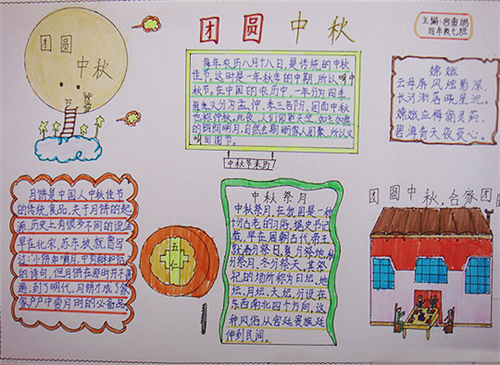 团圆中秋
主编:
四年级七班
团圆
中秋
每年农历八月十八日,是传统的中秋
佳节。这时是一年秋季的中期,所以叫中
秋节。在中国的农历中一年分为四季
每季又分为孟、仲、季三各部分,因而中秋
也称仲秋。此夜,人们仰望天空,如玉如盘
的朗朗明月,自然会期盼家人团聚,所以又
叫团圆节。
中秋节来历
嫦娥
云母屏风烛影深,
长河渐落晓星沉。
嫦娥应悔偷灵药,
碧海青天夜夜心。
月饼是中国人中秋佳节
的传统食品,关于月饼的起
源,历史上有很多不同的说法
早在北宋,苏东坡就曾写
过:小饼如嚼月,中有酥和饴
的诗句,但月饼在那时并不普
遍,到了明代,月饼才成了家
家户户中秋月时的必备品。
五仁
中秋祭月
中秋祭月,在我国是一种
十分古老的习俗。据史书记
载,早在周朝古代帝王
就有春分祭日、夏分祭地、秋
分祭月、冬分祭天,其祭
祀的场所称为日坛、地
坛、月坛、天坛。分设在
东西南北四个方向。这
种风俗从宫廷贵族延
伸到民间。
团圆中秋,合家团圆